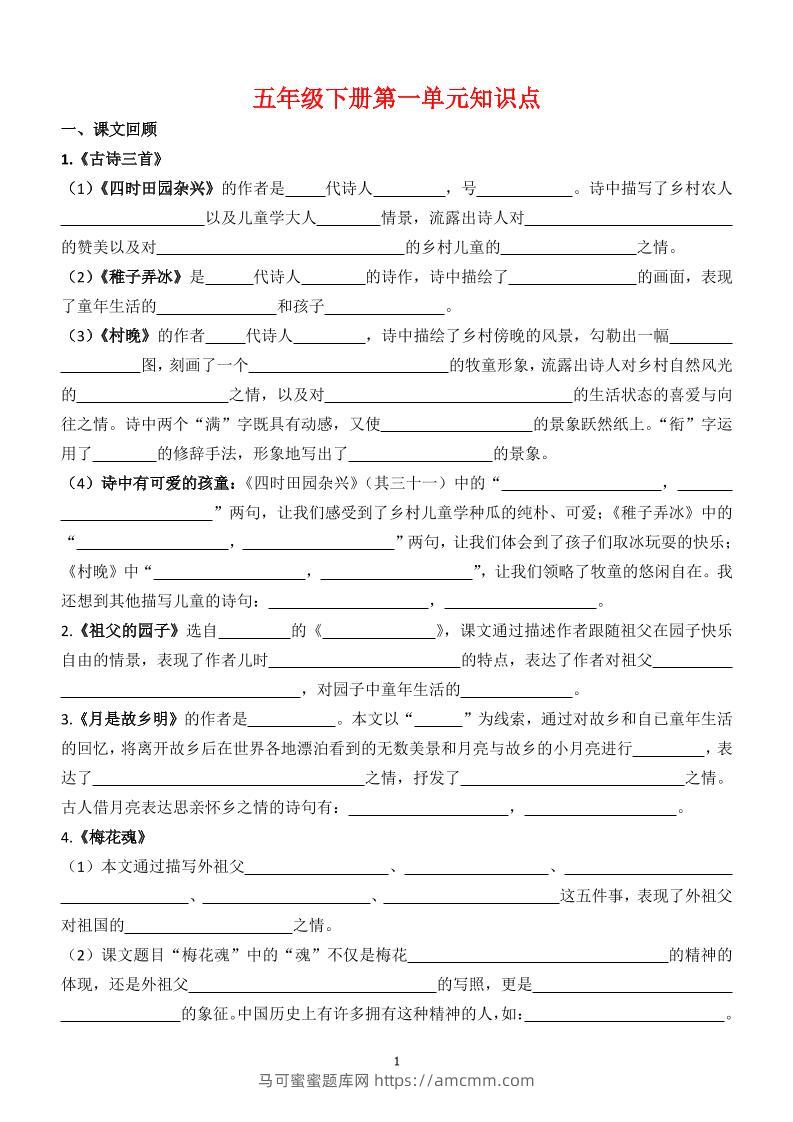 五年级下册第一单元知识点
一、课文回顾
1.《古诗三首》
（1）《四时田园杂兴》的作者是_____代诗人_________，号____________。诗中描写了乡村农人
__________________以及儿童学大人________情景，流露出诗人对__________________________
的赞美以及对_______________________________的乡村儿童的_________________之情。
（2）《稚子弄冰》是______代诗人________的诗作，诗中描绘了________________的画面，表现
了童年生活的_______________和孩子_______________。
（3）《村晚》的作者_____代诗人_________，诗中描绘了乡村傍晚的风景，勾勒出一幅________
__________图，刻画了一个_________________________的牧童形象，流露出诗人对乡村自然风光
的___________________之情，以及对_______________________________的生活状态的喜爱与向
往之情。诗中两个“满”字既具有动感，又使___________________的景象跃然纸上。“衔”字运
用了________的修辞手法，形象地写出了__________________的景象。
（4）诗中有可爱的孩童：《四时田园杂兴》（其三十一）中的“____________________，_______
___________________”两句，让我们感受到了乡村儿童学种瓜的纯朴、可爱；《稚子弄冰》中的
“___________________，___________________”两句，让我们体会到了孩子们取冰玩耍的快乐；
《村晚》中“___________________，___________________”，让我们领略了牧童的悠闲自在。我
还想到其他描写儿童的诗句：____________________，___________________。
2.《祖父的园子》选自_________的《______________》，课文通过描述作者跟随祖父在园子快乐
自由的情景，表现了作者儿时________________________的特点，表达了作者对祖父__________
______________________________，对园子中童年生活的______________。
3.《月是故乡明》的作者是___________。本文以“______”为线索，通过对故乡和自己童年生活
的回忆，将离开故乡后在世界各地漂泊看到的无数美景和月亮与故乡的小月亮进行_________，表
达了__________________________________之情，抒发了____________________________之情。
古人借月亮表达思亲怀乡之情的诗句有：____________________，___________________。
4.《梅花魂》
（1）本文通过描写外祖父__________________、__________________、_____________________
________________、_____________________、______________________这五件事，表现了外祖父
对祖国的_____________________之情。
（2）课文题目“梅花魂”中的“魂”不仅是梅花_________________________________的精神的
体现，还是外祖父_______________________________的写照，更是_________________________
_______________的象征。中国历史上有许多拥有这种精神的人，如：_________________________。
1
马可蜜蜜题库网 https://amcmm.com